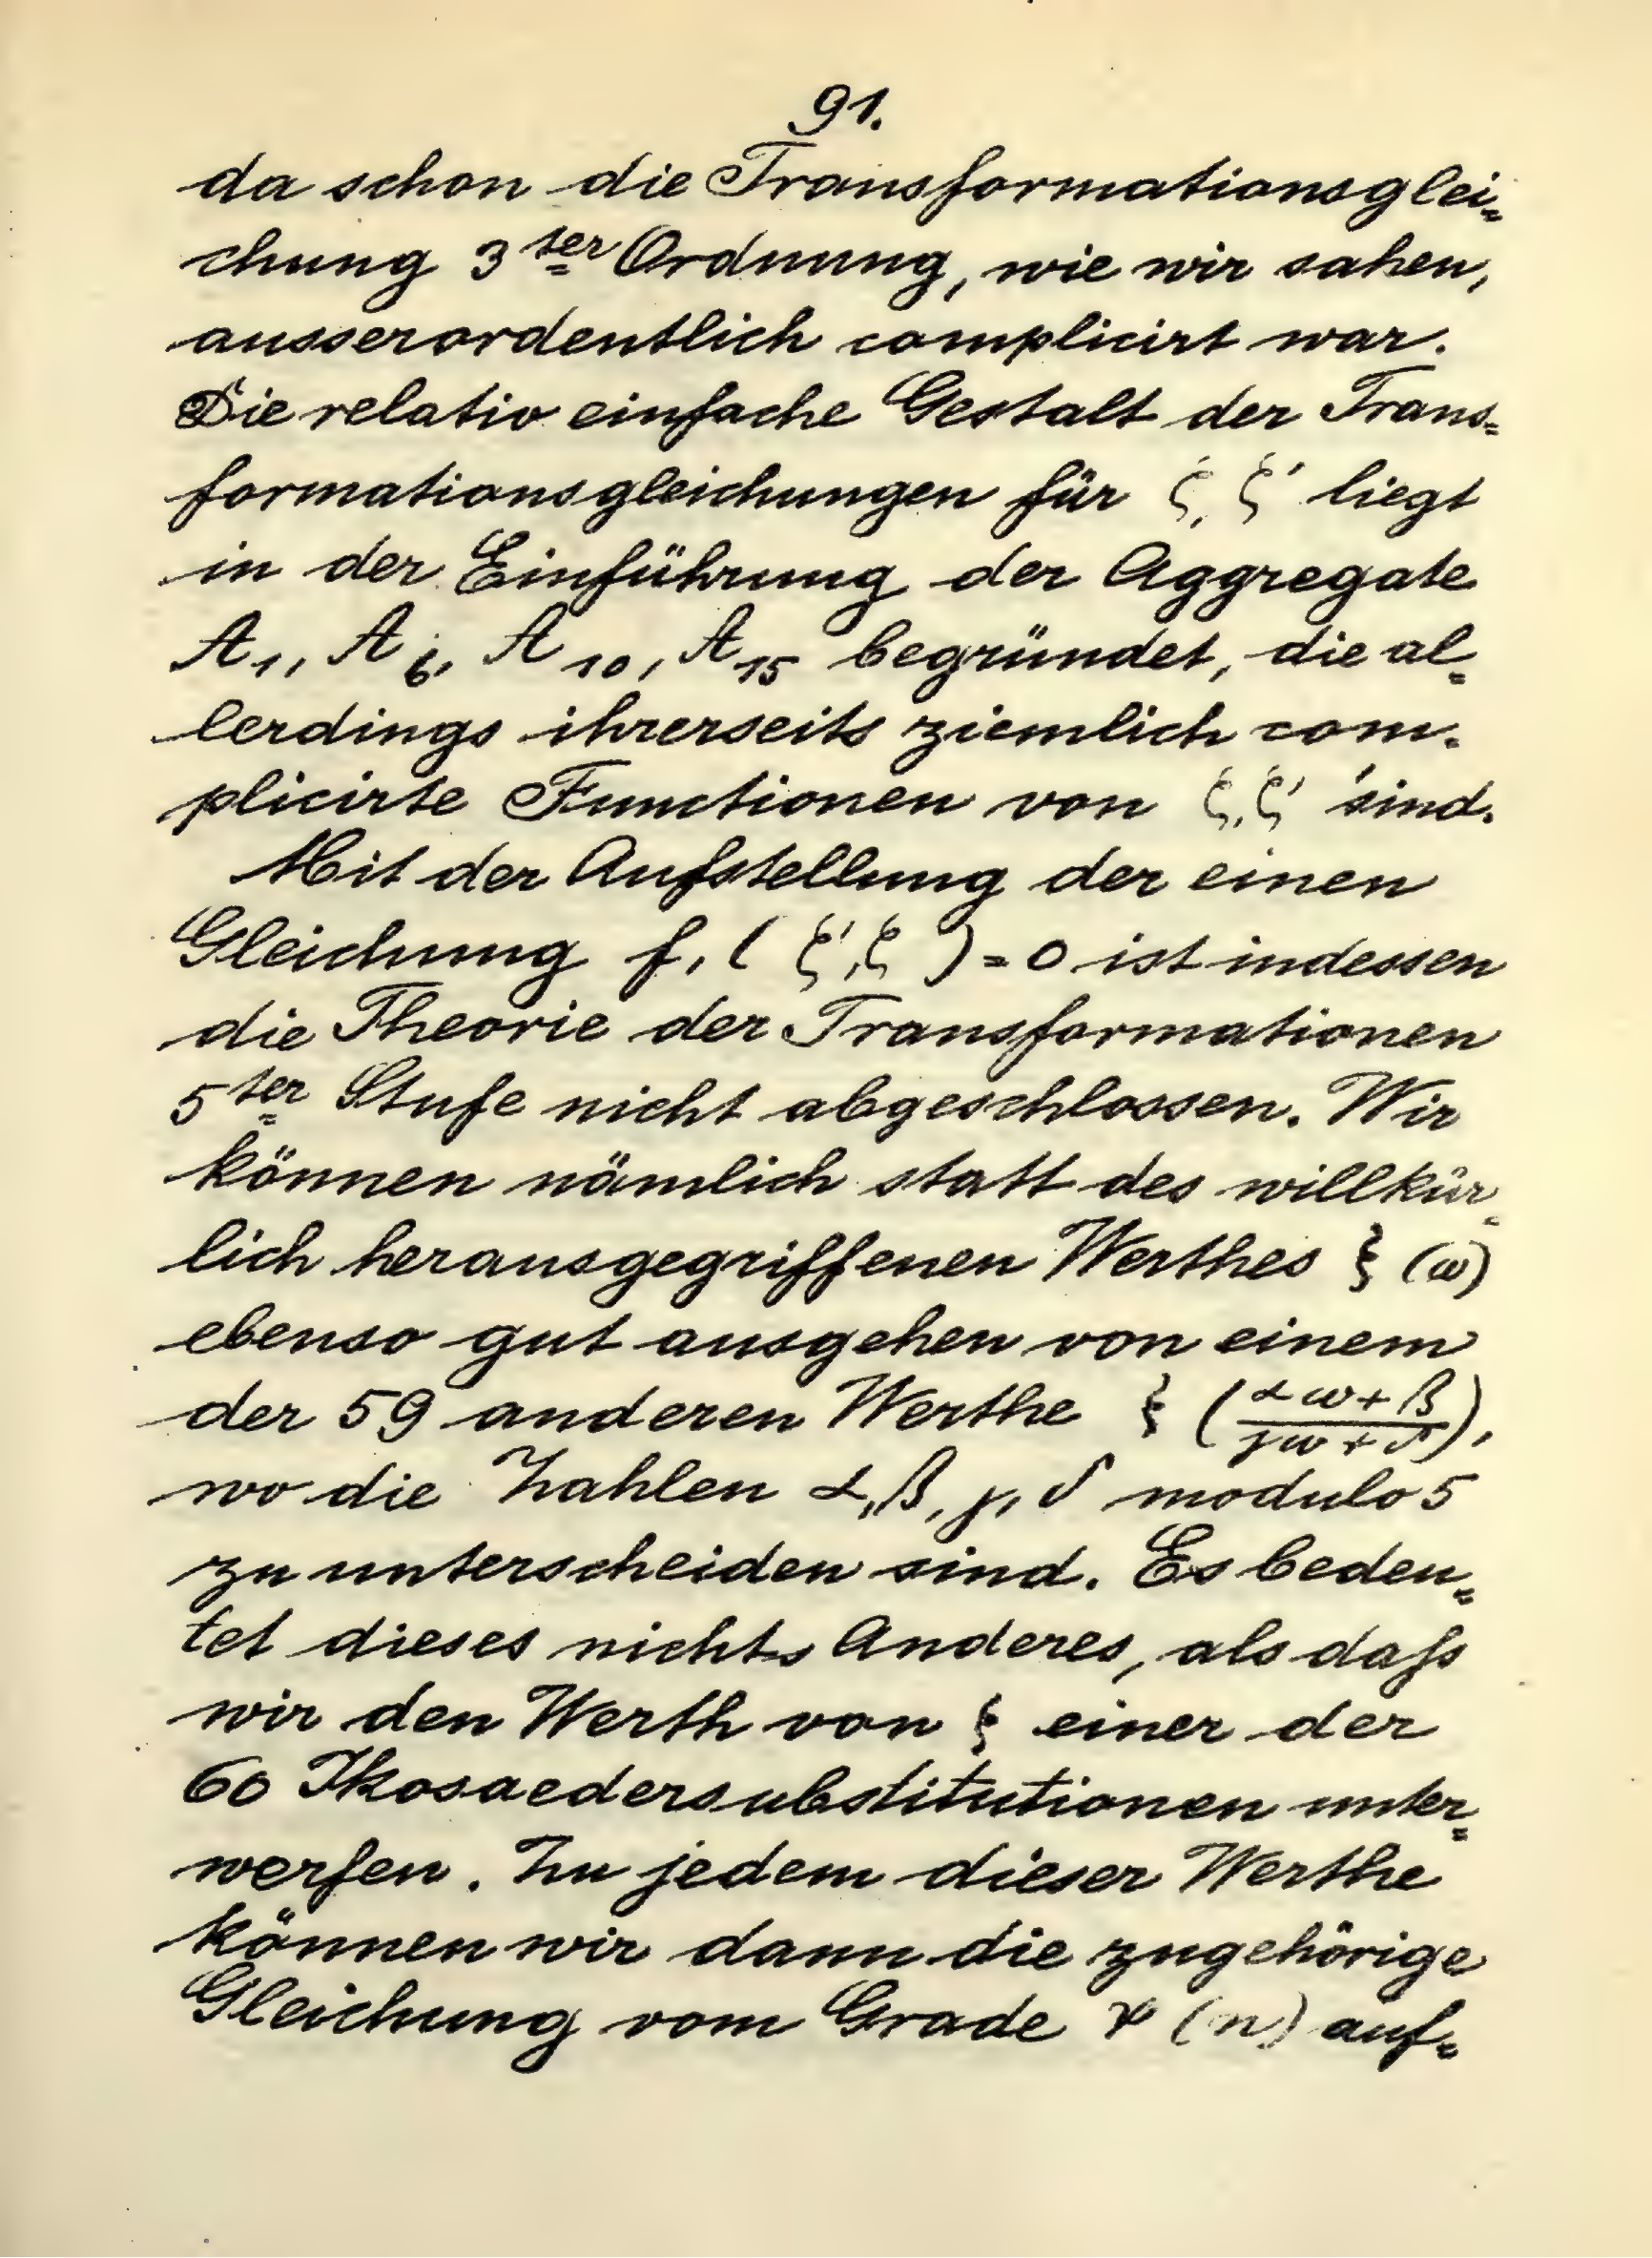 91.
da schon die Transformationsglei=
chung 3ter Ordnung, wie wir sahen,
ausserordentlich complicirt war.
Die relativ einfache Gestalt der Trans=
formationsgleichungen für ζ, ζ' liegt
in der Einführung der Aggregate
A₁, A₆, A₁₀, A₁₅ begründet, die al=
lerdings ihrerseits ziemlich com=
plicirte Functionen von ζ, ζ' sind.
Mit der Aufstellung der einen
Gleichung f, ( ξ', ξ ) = 0 ist indessen
die Theorie der Transformationen
5ter Stufe nicht abgeschlossen. Wir
können nämlich statt des willkür=
lich herausgegriffenen Werthes ξ (ω)
ebenso gut ausgehen von einem
der 59 anderen Werthe ξ ((αω+β)/(γω+δ)),
wo die Zahlen α, β, γ, δ modulo 5
zu unterscheiden sind. Es bedeu=
tet dieses nichts Anderes, als daſs
wir den Werth von ξ einer der
60 Ikosaedersubstitutionen unter=
werfen. Zu jedem dieser Werthe
können wir dann die zugehörige
Gleichung vom Grade ψ (n) auf=